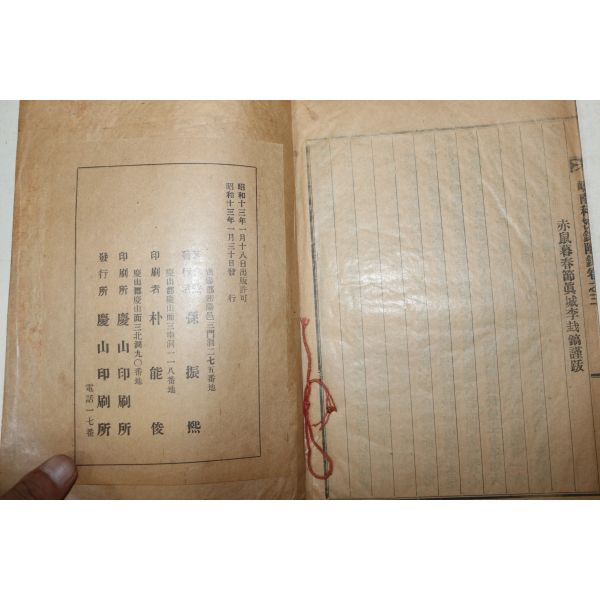 赤鼠暮春節眞城李㦲鎬謹跋
昭和十三年一月十八日出版許可
昭和十三年一月三十日發行
三門洞二七五番地
孫振熙
慶山郡慶山面三南洞一一八番地
印刷者 朴能俊
慶山郡慶山面三北洞九〇番地
印刷所 慶山印刷所
發行所 慶山印刷所
電話一七番